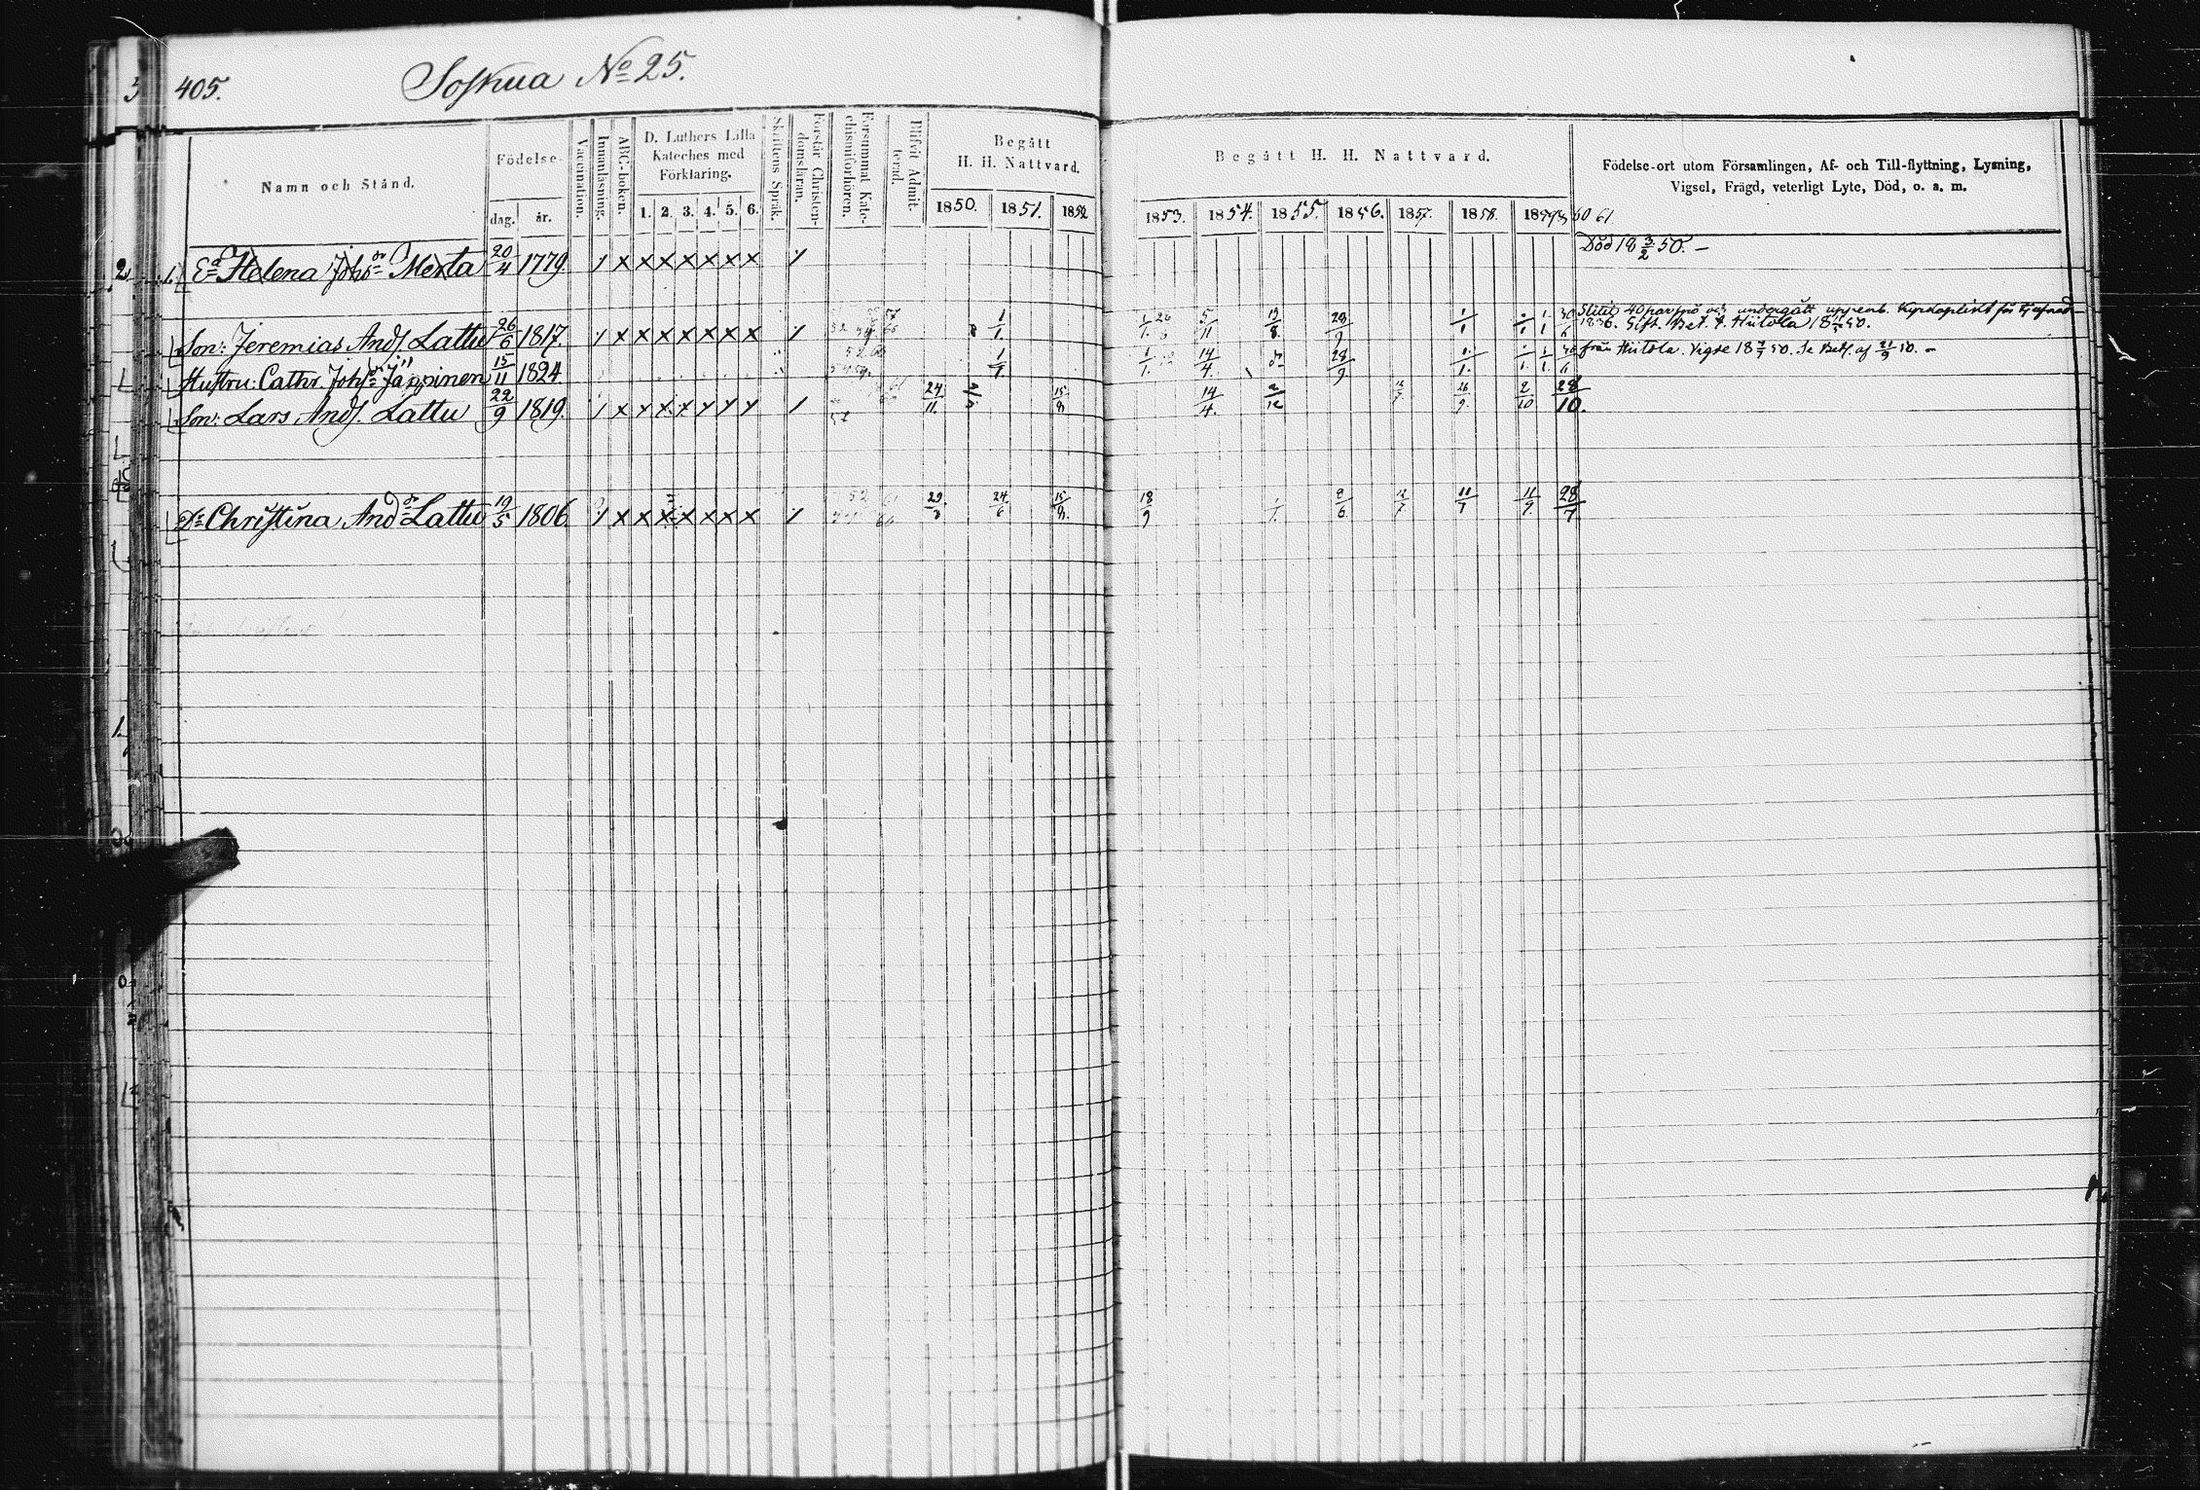 405. Soskua No 25.
Namn och Stånd. Födelse- dag. år. Vaccination. Innanläsning. ABC-boken. D. Luthers Lilla Kateches med Förklaring. 1. 2. 3. 4. 5. 6. Skriftens Språk. Förstår Christendomsläran. Försummat Katechismiförhören. Blifvit Admitterad. Begått H. H. Nattvard. 1850. 1851. 1852.
Begått H. H. Nattvard. 1853. 1854. 1855. 1856. 1857. 1858. 1859 60 61
Födelse-ort utom Församlingen, Af- och Till-flyttning, Lysning,
Vigsel, Frägd, veterligt Lyte, Död, o. a. m.
Ea Helena Johsdr Merta 20/4 1779. Död 18 3/2 50. –
Son: Jeremias Ands. Lattu 26/6 1817. 1/1 5/11 29/9 1/1 Slitit 40 par spö och undergått uppenb. Kyrkoplikt för tjufnad
1836. Gift. Bet. t. Hiitola 18 50.
Hustru: Cathr. Johsdr Jäppinen 15/11 1824 1/1 14/4 do 29/9 1/1 från Hiitola. Vigde 18 7/7 50. Se Bet. af 21/9 50. –
Son: Lars Ands. Lattu 22/9 1819. 24/11 15/8 14/4 2/12 26/9 2/10 28/10.
Dr Christina Anddr Lattu 19/5 1806. 24/6 15/8 18/9 8/6 11/7 11/9 28/7